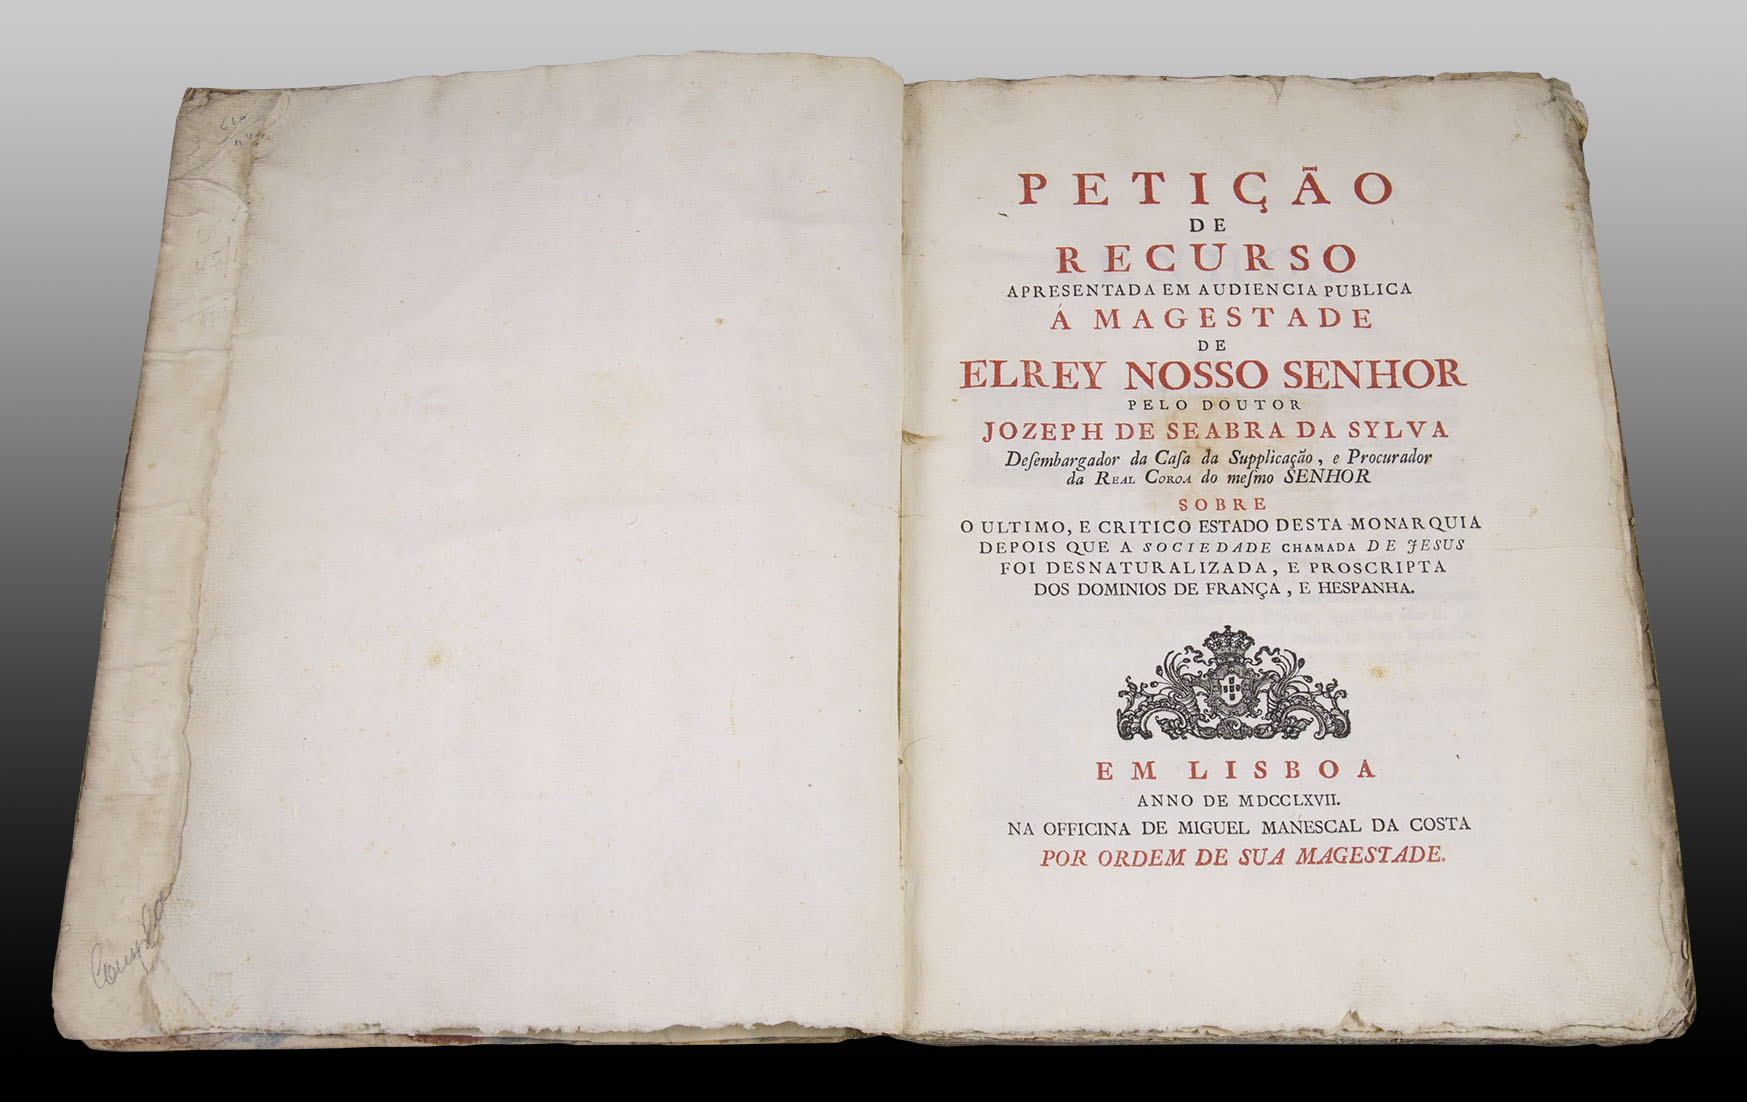 PETIÇÃO
DE
RECURSO
APRESENTADA EM AUDIENCIA PUBLICA
Á MAGESTADE
DE
ELREY NOSSO SENHOR
PELO DOUTOR
JOZEPH DE SEABRA DA SYLVA
Deſembargador da Caſa da Supplicação, e Procurador
da REAL COROA do meſmo SENHOR
SOBRE
O ULTIMO, E CRITICO ESTADO DESTA MONARQUIA
DEPOIS QUE A SOCIEDADE CHAMADA DE JESUS
FOI DESNATURALIZADA, E PROSCRIPTA
DOS DOMINIOS DE FRANÇA, E HESPANHA.
EM LISBOA
ANNO DE MDCCLXVII.
NA OFFICINA DE MIGUEL MANESCAL DA COSTA
POR ORDEM DE SUA MAGESTADE.